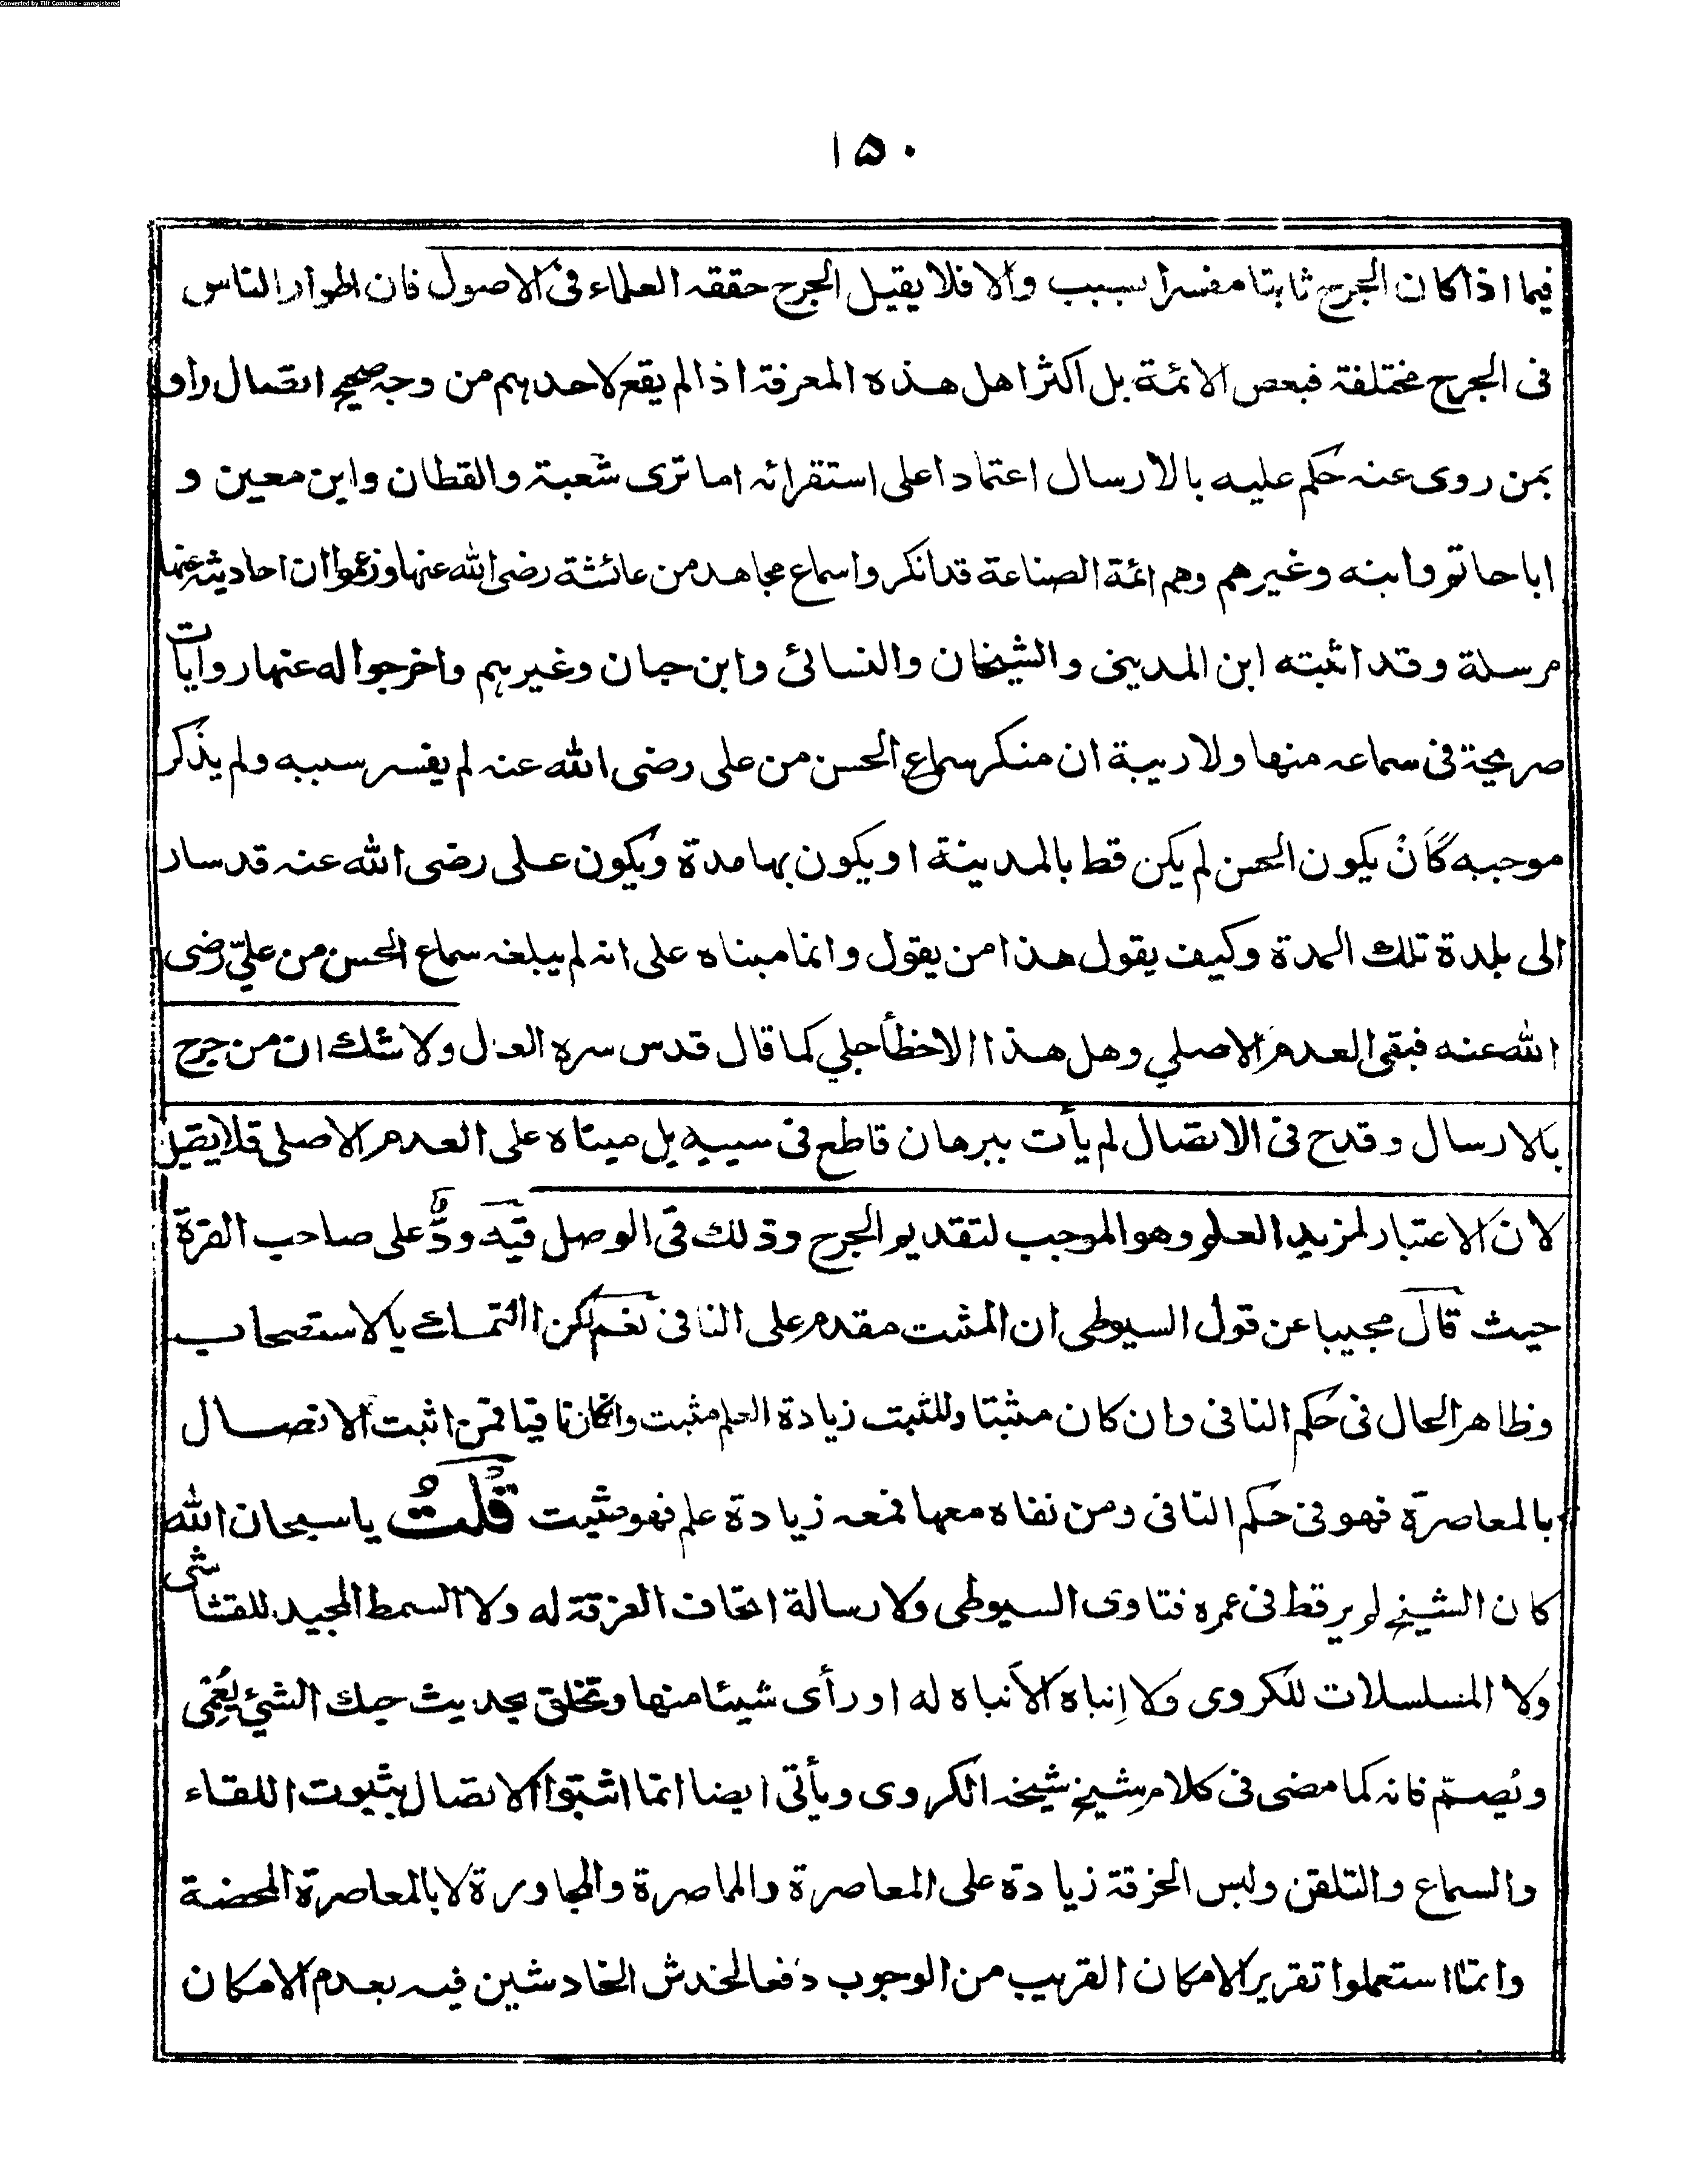 Converted by Tiff Combine - unregistered
۱۵۰
فيما اذا كان الجرح ثابتا مفسرا بسبب والا فلا يقبل الجرح حققه العلماء فى الاصول فان اطوار الناس
فى الجرح مختلفة فبعض الائمة بل اكثر اهل هذه المعرفة اذا لم يقع لاحدهم من وجه صحيح اتصال راو
بمن روى عنه حكم عليه بالارسال اعتمادا على استقرائه اما ترى شعبة والقطان وابن معين و
ابا حاتم وابنه وغيرهم وهم ائمة الصناعة قد انكروا سماع مجاهد من عائشة رضى الله عنها وزعموا ان احاديثه عنها
مرسلة وقد اثبته ابن المدينى والشيخان والنسائى وابن حبان وغيرهم واخرجوا له عنها روايات
صريحة فى سماعه منها ولا ريبة ان منكر سماع الحسن من على رضى الله عنه لم يفسر سببه ولم يذكر
موجبه كَاَنْ يكون الحسن لم يكن قط بالمدينة او يكون بها مدة ويكون على رضى الله عنه قد سار
الى بلدة تلك المدة وكيف يقول هذا من يقول وانما مبناه على انه لم يبلغه سماع الحسن من علىّ رضى
الله عنه فبقى العدم الاصلي وهل هذا الا خطأ جلي كما قال قدس سره العدل ولا شك ان من جرح
بالارسال وقدح فى الاتصال لم يأت ببرهان قاطع فى سببه بل مبناه على العدم الاصلى فلا يقبل
لان الاعتبار لمزيد العلم وهو الموجب لتقديم الجرح وذلك فى الوصل فيه ودٌّ على صاحب القرة
حيث قال مجيبا عن قول السيوطى ان المثبت مقدم على النافى نعم لكن التمسك بالاستصحاب
وظاهر الحال فى حكم النافى وان كان مثبتا وللثبت زيادة العلم مثبت وانكان نافيا فمن اثبت الاتصال
بالمعاصرة فهو فى حكم النافى ومن نفاه معها فمعه زيادة علم فهو مثبت قُلْتُ يا سبحان الله
كان الشيخ لم ير قط فى عمره فتاوى السيوطى ولا رسالة اتحاف الفرقة له ولا السمط المجيد للقشاشى
ولا المسلسلات للكروى ولا اِنباه الاَنباه له او رأى شيئا منها وتخلق بحديث حبك الشئ يُعْمِى
ويُصمّ فانه كما مضى فى كلام شيخ شيخه الكروى ويأتى ايضا انما اثبتوا الاتصال بثبوت اللقاء
والسماع والتلقن ولبس الخرقة زيادة على المعاصرة والماصرة والمجاورة لا بالمعاصرة المحضة
وانما استعملوا تقرير الامكان القريب من الوجوب دفعا لخدش الخادشين فيه بعدم الامكان